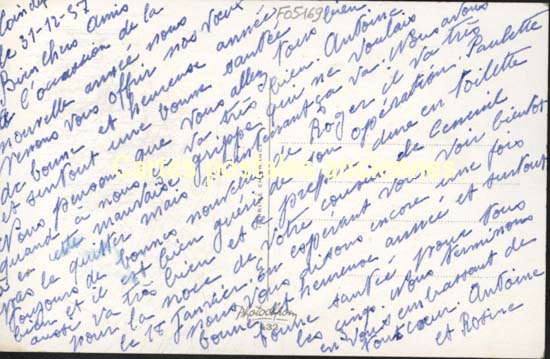 le 31-12-57
Bien chers Amis
à l'occasion de la
nouvelle année nous
venons vous offrir nos vœux
de bonne et heureuse année
et surtout une bonne santée
Nous pensons que vous allez tous bien.
quand à nous ça va très bien. Antoine
a eu cette mauvaise grippe qui ne voulais
pas le quitter mais maintenant ça va. Nous avons
toujours de bonnes nouvelles de Roger il va très
bien et il est bien guéri de son opération. Paulette
aussi va très bien et se prépare dune en toilette
pour la noce de votre cousin de
le 18 Janvier. En espérant vous voir bientôt
nous vous disons encore une fois
bonne et heureuse année et surtout
bonne santée pour vous
les cinq. Nous terminons
en vous embrassant de
tout cœur. Antoine
et Rosine
F05169
Cartes postales anciennes